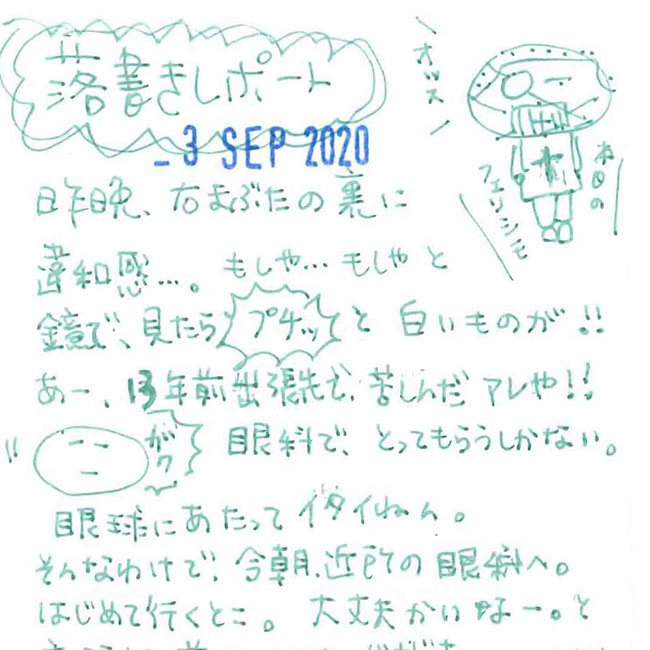 落書きレポート
オッス
- 3 SEP 2020
本日の
フェリシモ
昨晩、右まぶたの裏に
違和感…。もしや…もしやと
鏡で、見たらプチッと白いものが!!
あー、13年前出張先で、苦しんだアレや!!
ガク 眼科で、とってもらうしかない。
眼球にあたってイタイねん。
そんなわけで、今朝、近所の眼科へ。
はじめて行くとこ。大丈夫かいなー。と